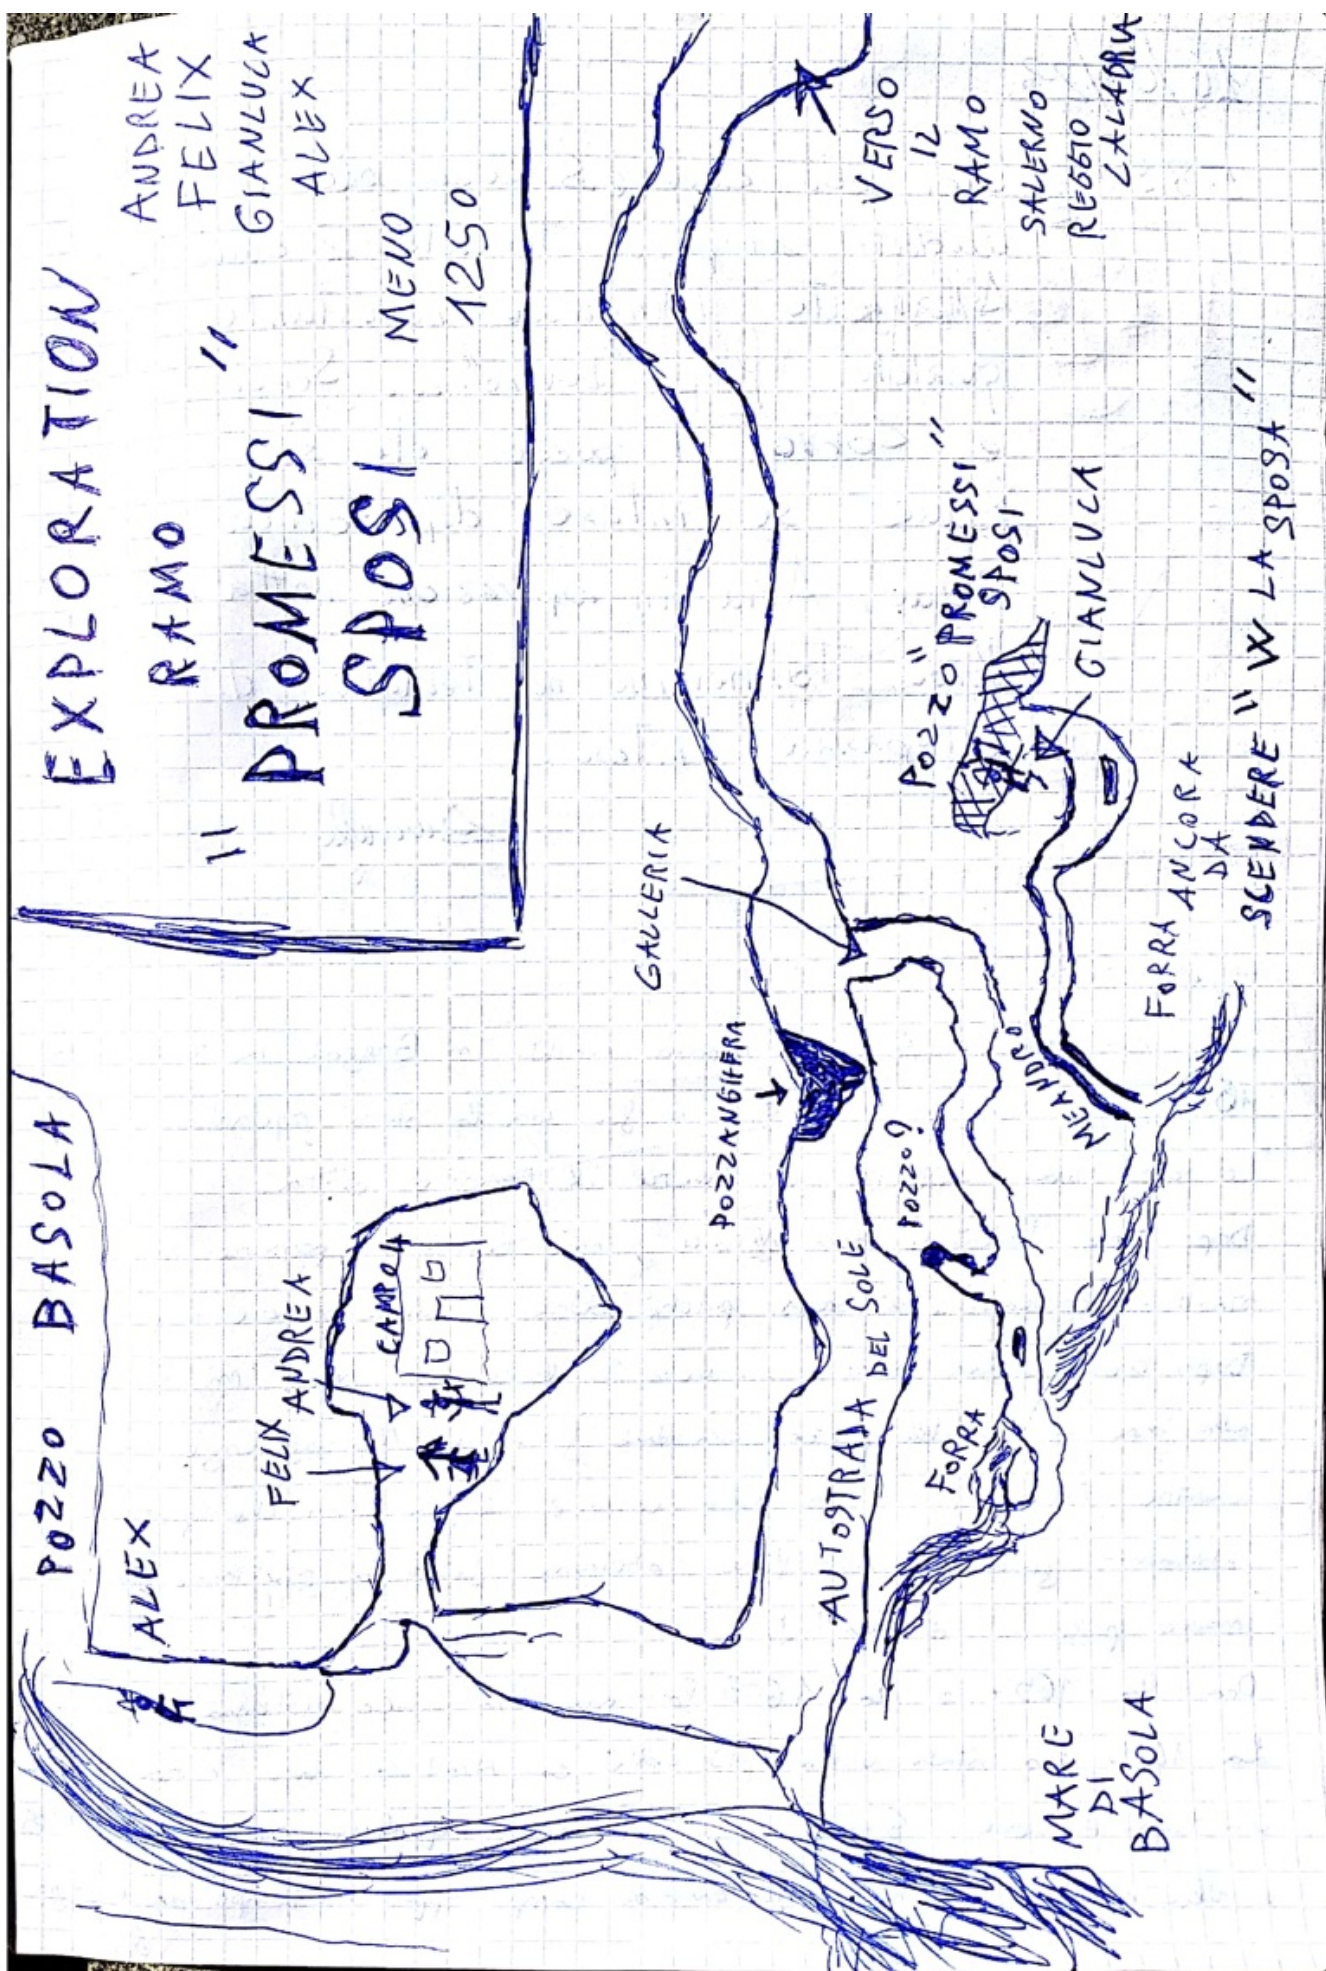 EXPLORATION
RAMO
" PROMESSI "
SPOSI
MENO
1250
ANDREA
FELIX
GIANLUCA
ALEX
POZZO BASOLA
ALEX
FELIX
ANDREA
CAMPO 4
GALLERIA
POZZANGHERA
AUTOSTRADA DEL SOLE
POZZO?
FORRA
MEANDRO
MARE
DI
BASOLA
VERSO
IL
RAMO
SALERNO
REGGIO
CALABRIA
POZZO " PROMESSI "
SPOSI
GIANLUCA
FORRA ANCORA
DA
SCENDERE " W LA SPOSA "